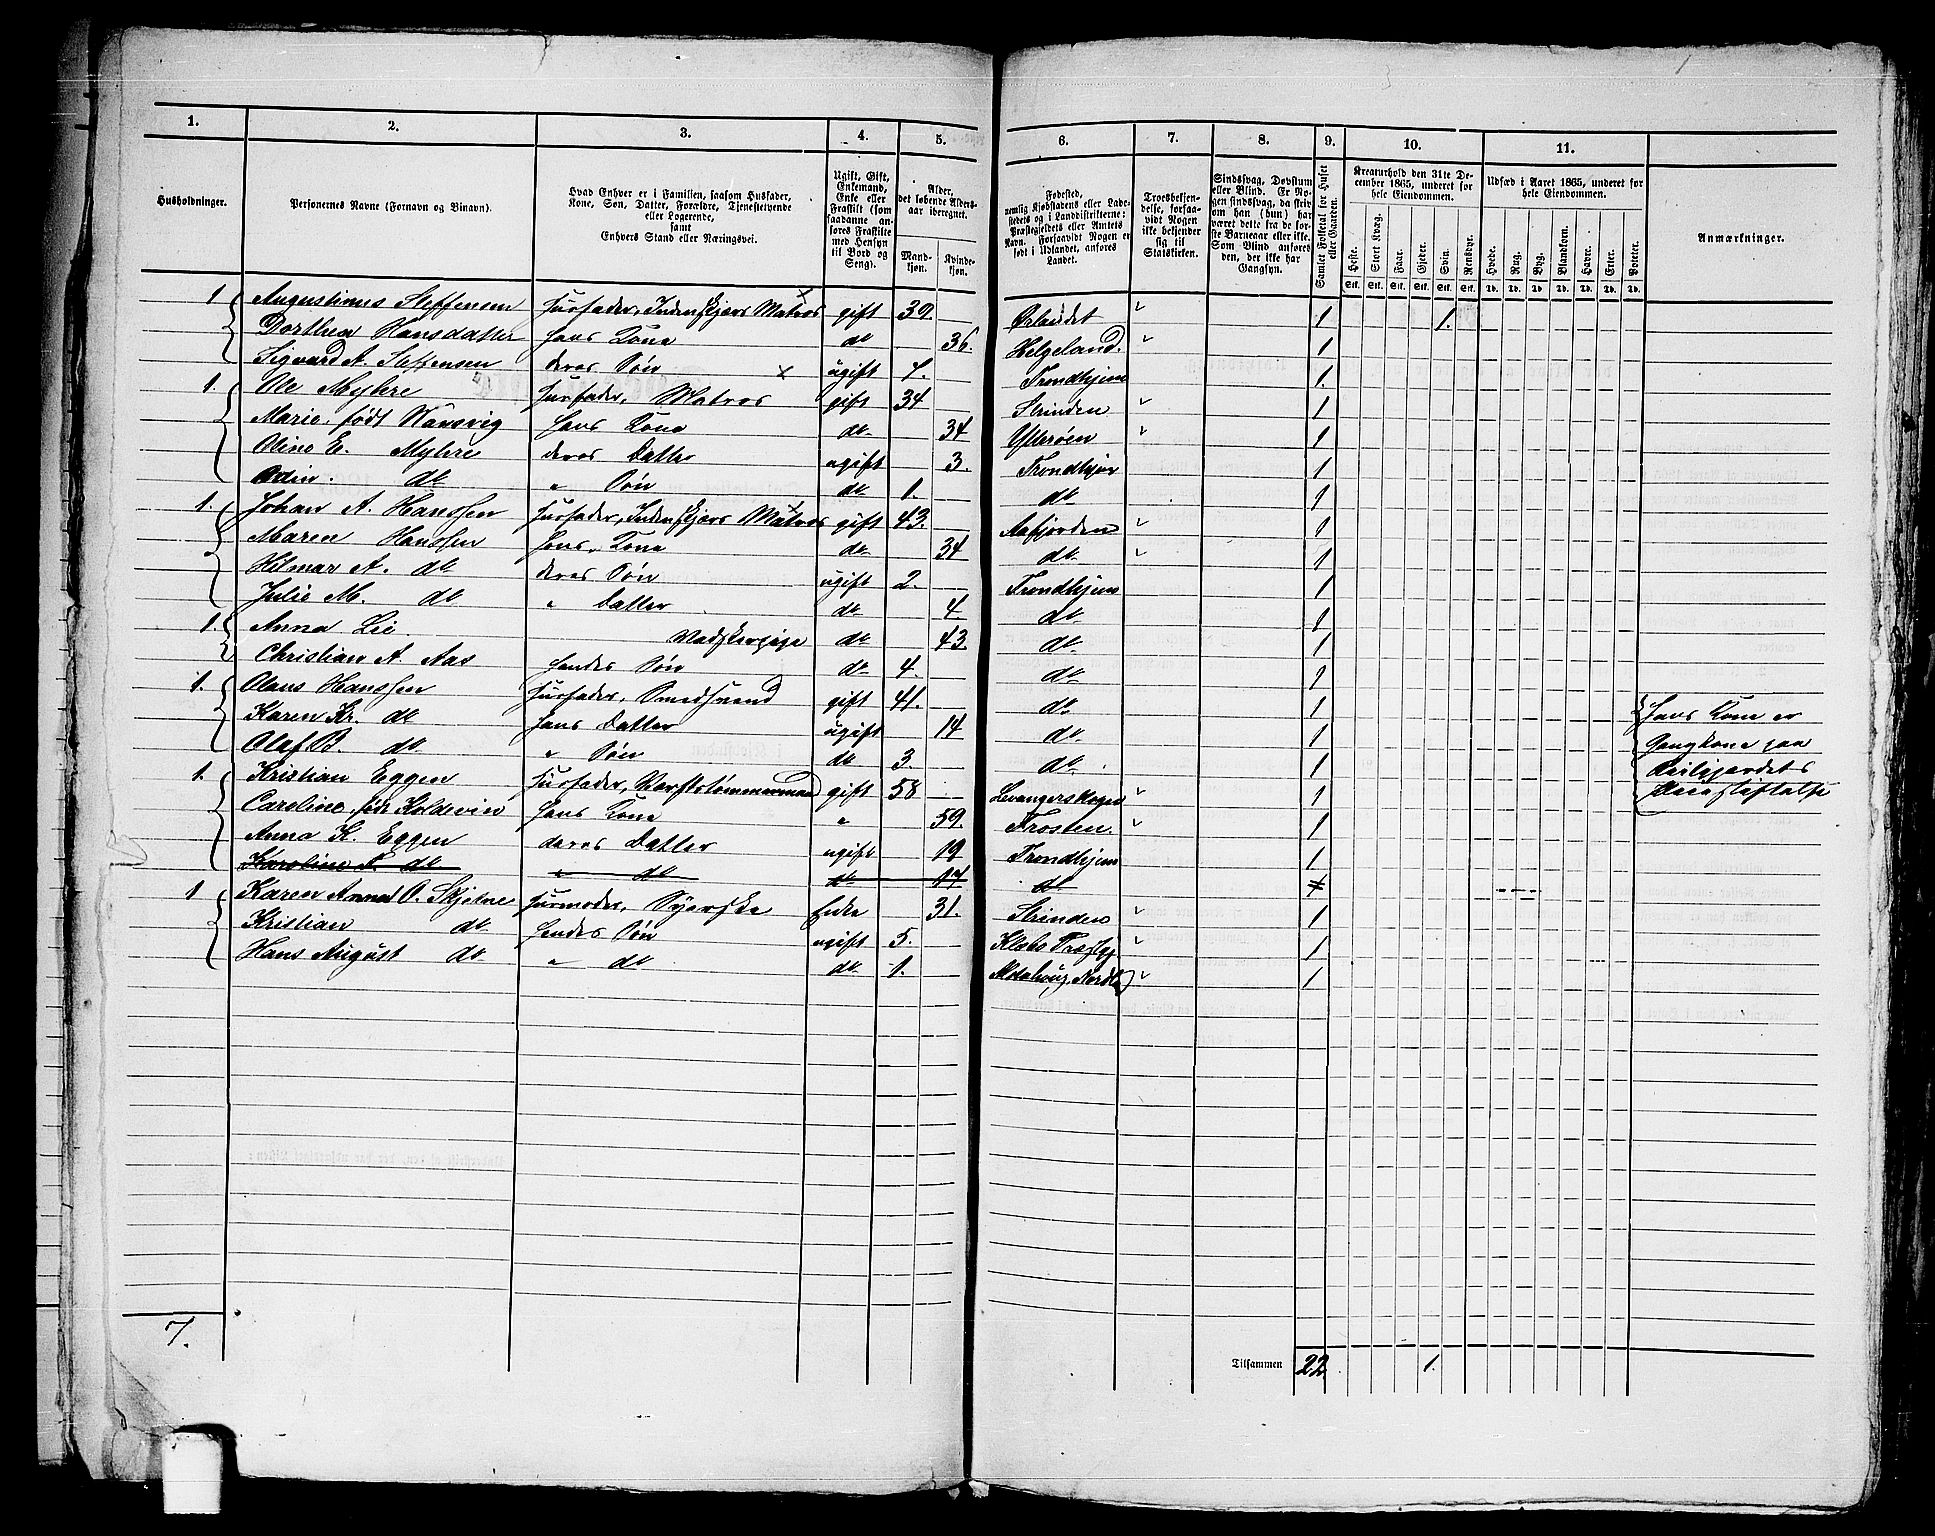 1. 2. 3. 4. 5. 6. 7. 8. 9. 10. 11.
Husholdninger.
Personernes Navne (Fornavn og Binavn).
Hvad Enhver er i Familien, saasom Husfader,
Kone, Søn, Datter, Forældre, Tjenestetyende
eller Logerende,
samt
Enhvers Stand eller Næringsvei.
Ugift, Gift,
Enkemand,
Enke eller
Fraskilt (som
saadanne an-
føres Fraskilte
med Hensyn
til Bord og
Seng).
Alder,
det løbende Alders-
aar iberegnet.
Mand-
kjøn.
Kvinde-
kjøn.
Fødested,
nemlig Kjøbstadens eller Lade-
stedets og i Landdistrikterne:
Præstegjeldets eller Amtets
Navn. Forsaavidt Nogen er
født i Udlandet, anføres
Landet.
Troesbekjen-
delse, forsaa-
vidt Nogen
ikke bekjender
sig til
Statskirken.
Sindssvag, Døvstum
eller Blind. Er No-
gen sindssvag, da skriv
om han (hun) har
været dette fra de før-
ste Barneaar eller ikke.
Som Blind anføres
den, der ikke har
Gangsyn.
Samlet Folketal for Huset
eller Gaarden.
Kreaturhold den 31te De-
cember 1865, underet for
hele Eiendommen.
Heste. Stort Kvæg. Faar. Gjeder. Svin. Rensdyr.
Stk. Stk. Stk. Stk. Stk. Stk.
Udsæd i Aaret 1865, underet for
hele Eiendommen.
Hvede. Rug. Byg. Blandkorn. Havre. Erter. Poteter.
Td. Td. Td. Td. Td. Td. Td.
Anmærkninger.
1. Augustinus Steffensen Husfader, Indenskjærs Matros gift 39. Ørlandet 1 1.
Dorthea Hansdatter hans Kone do 36. Helgeland. 1
Sigvard A. Steffensen deres Søn ugift 1. Trondhjem 1.
1. Ole Myhre Husfader, Matros gift 34 Strinden 1
Marie, født Wansvig hans Kone do 34 Ytterøen 1
Oline E. Myhre deres Datter ugift 3. Trondhjem 1
Odin. do " Søn do 1. do 1
1. Johan A. Hanssen Husfader, Indenskjærs Matros gift 43. Aafjorden 1
Maren Hanssen hans Kone do 34 do 1
Hilmar A. do deres Søn ugift 2. Trondhjem 1
Julie M. do " Datter do 4 do 1
1. Anna Lie Vadskerpige do 43. do 1
Christian A. Aas hendes Søn do 4. do 1
1. Olaus Hanssen Husfader, Smedsvend gift 41. do 1 hans Kone er
Karen Kr. do hans Datter ugift 14 do 1 Gangkone paa
Olaf B. do " Søn do 3. do 1
1. Kristian Eggen Husfader, Værftstømmermand gift 58 Levangerskogn 1
Caroline, født Koldevin hans Kone " 59. Frosten. 1
Anna K. Eggen deres Datter ugift 19 Trondhjem 1
Karoline A. do " do do 17 do 1
1 Karen Anna O. Skjetne Husmoder, Syerske Enke 31. Strinden 1
Kristian do hendes Søn ugift 5. Klæbo Præstgj. 1
Hans August do " do do 1. Alstahoug, Nordl. 1
7.
Tilsammen 22 1.